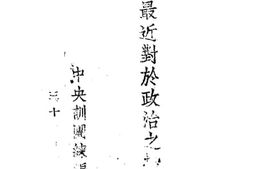 最近對於政治之
中央訓團練
三十